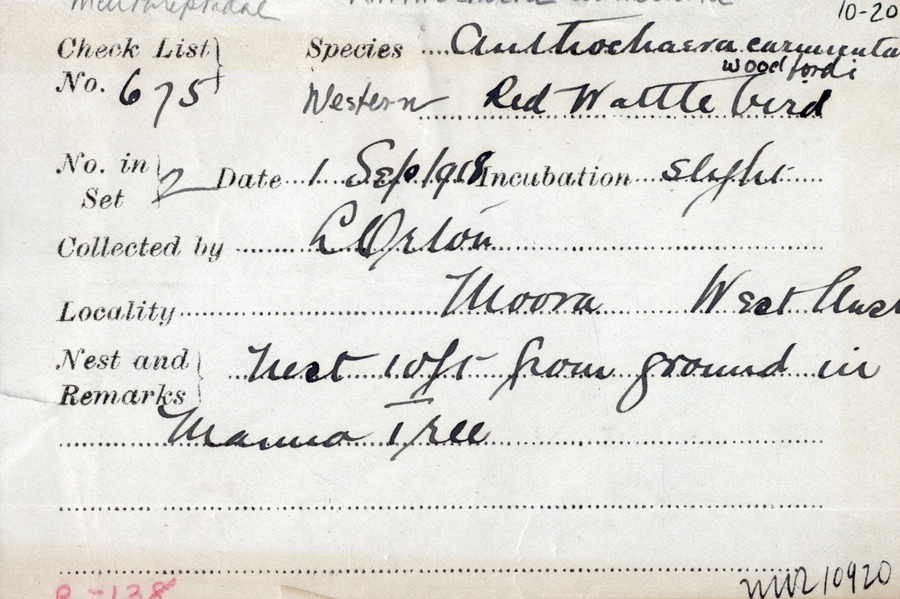 10-20
Check List
No. 675
Species Anthochaera carunculata
woodfordi
Western Red Wattle bird
No. in Set 2 Date 1 Sep 1918 Incubation slight
Collected by L Orton
Locality Moora West Aust
Nest and Remarks Nest 10ft from ground in
Manna Tree
B-138
10920